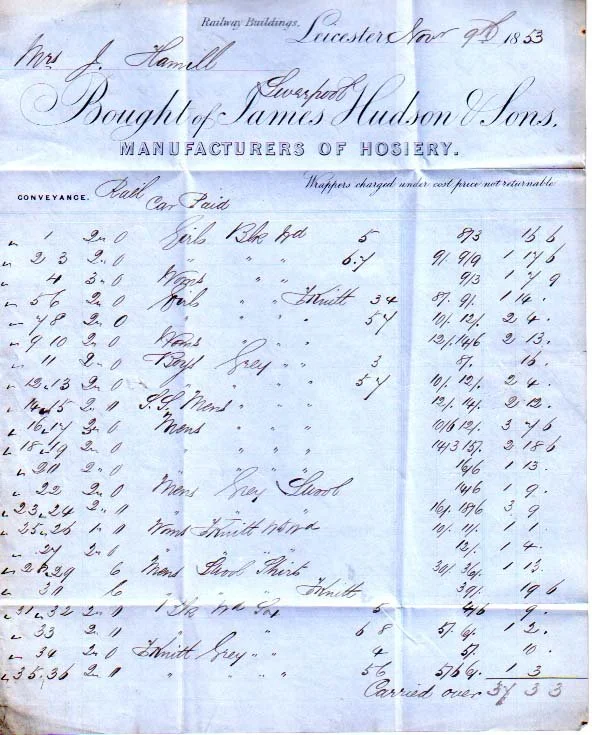 Railway Buildings,
Leicester Novr 9th 1853
Mrs J. Hamill
Liverpool
Bought of James Hudson & Sons,
MANUFACTURERS OF HOSIERY.
Wrappers charged under cost price not returnable
CONVEYANCE. Rail
Car Paid
1 2 " 0 Girls Blk Wd 5 8/3 16 6
2 3 " 0 " " " 6.7 9/. 9/9 1 17 6
4 3 " 0 Wom " " 9/3 1 7 9
5 6 2 " 0 Girls " " Knitt 3 4 8/. 9/. 1 14 .
7 8 2 " 0 " " " " 5 7 10/. 12/. 2 4 .
9 10 2 " 0 Woms " " " 12/. 14/6 2 13 .
11 2 " 0 Boys Grey " " 3 8/. 16 .
12 " 13 2 " 0 " " " 5 7 10/. 12/. 2 4 .
14 " 15 2 " 0 Mens " " " 12/. 14/. 2 12 .
16 " 17 0 Mens " " " 10/6 12/. 3 7 6
18 " 19 2 " 0 " " " 14/3 15/. 2 18 6
2 " 0 " " " " 16/6 1 13 .
22 2 " 0 Mens Grey 14/6 1 9 .
23 " 24 2 " 0 " " " 16/. 18/6 3 9
25 " 26 1 " 0 Woms Knitt Wd 10/. 11/. 1 1 .
27 2 " 0 " " " " 12/. 1 4 .
28 " 29 6 Mens Shirts 30/. 36/. 1 13 .
30 6 " " " Knitt 39/. 19 6
31 " 32 2 " 0 Wd 5 4/6 9 .
33 2 " 0 " " " " 6 8 5/. 6/. 1 2 .
34 2 " 0 Knitt Grey " " 4 5/. 10 .
35 " 36 2 " 0 " " " " 5 6 5/6 6/. 1 3
Carried over 37 3 3